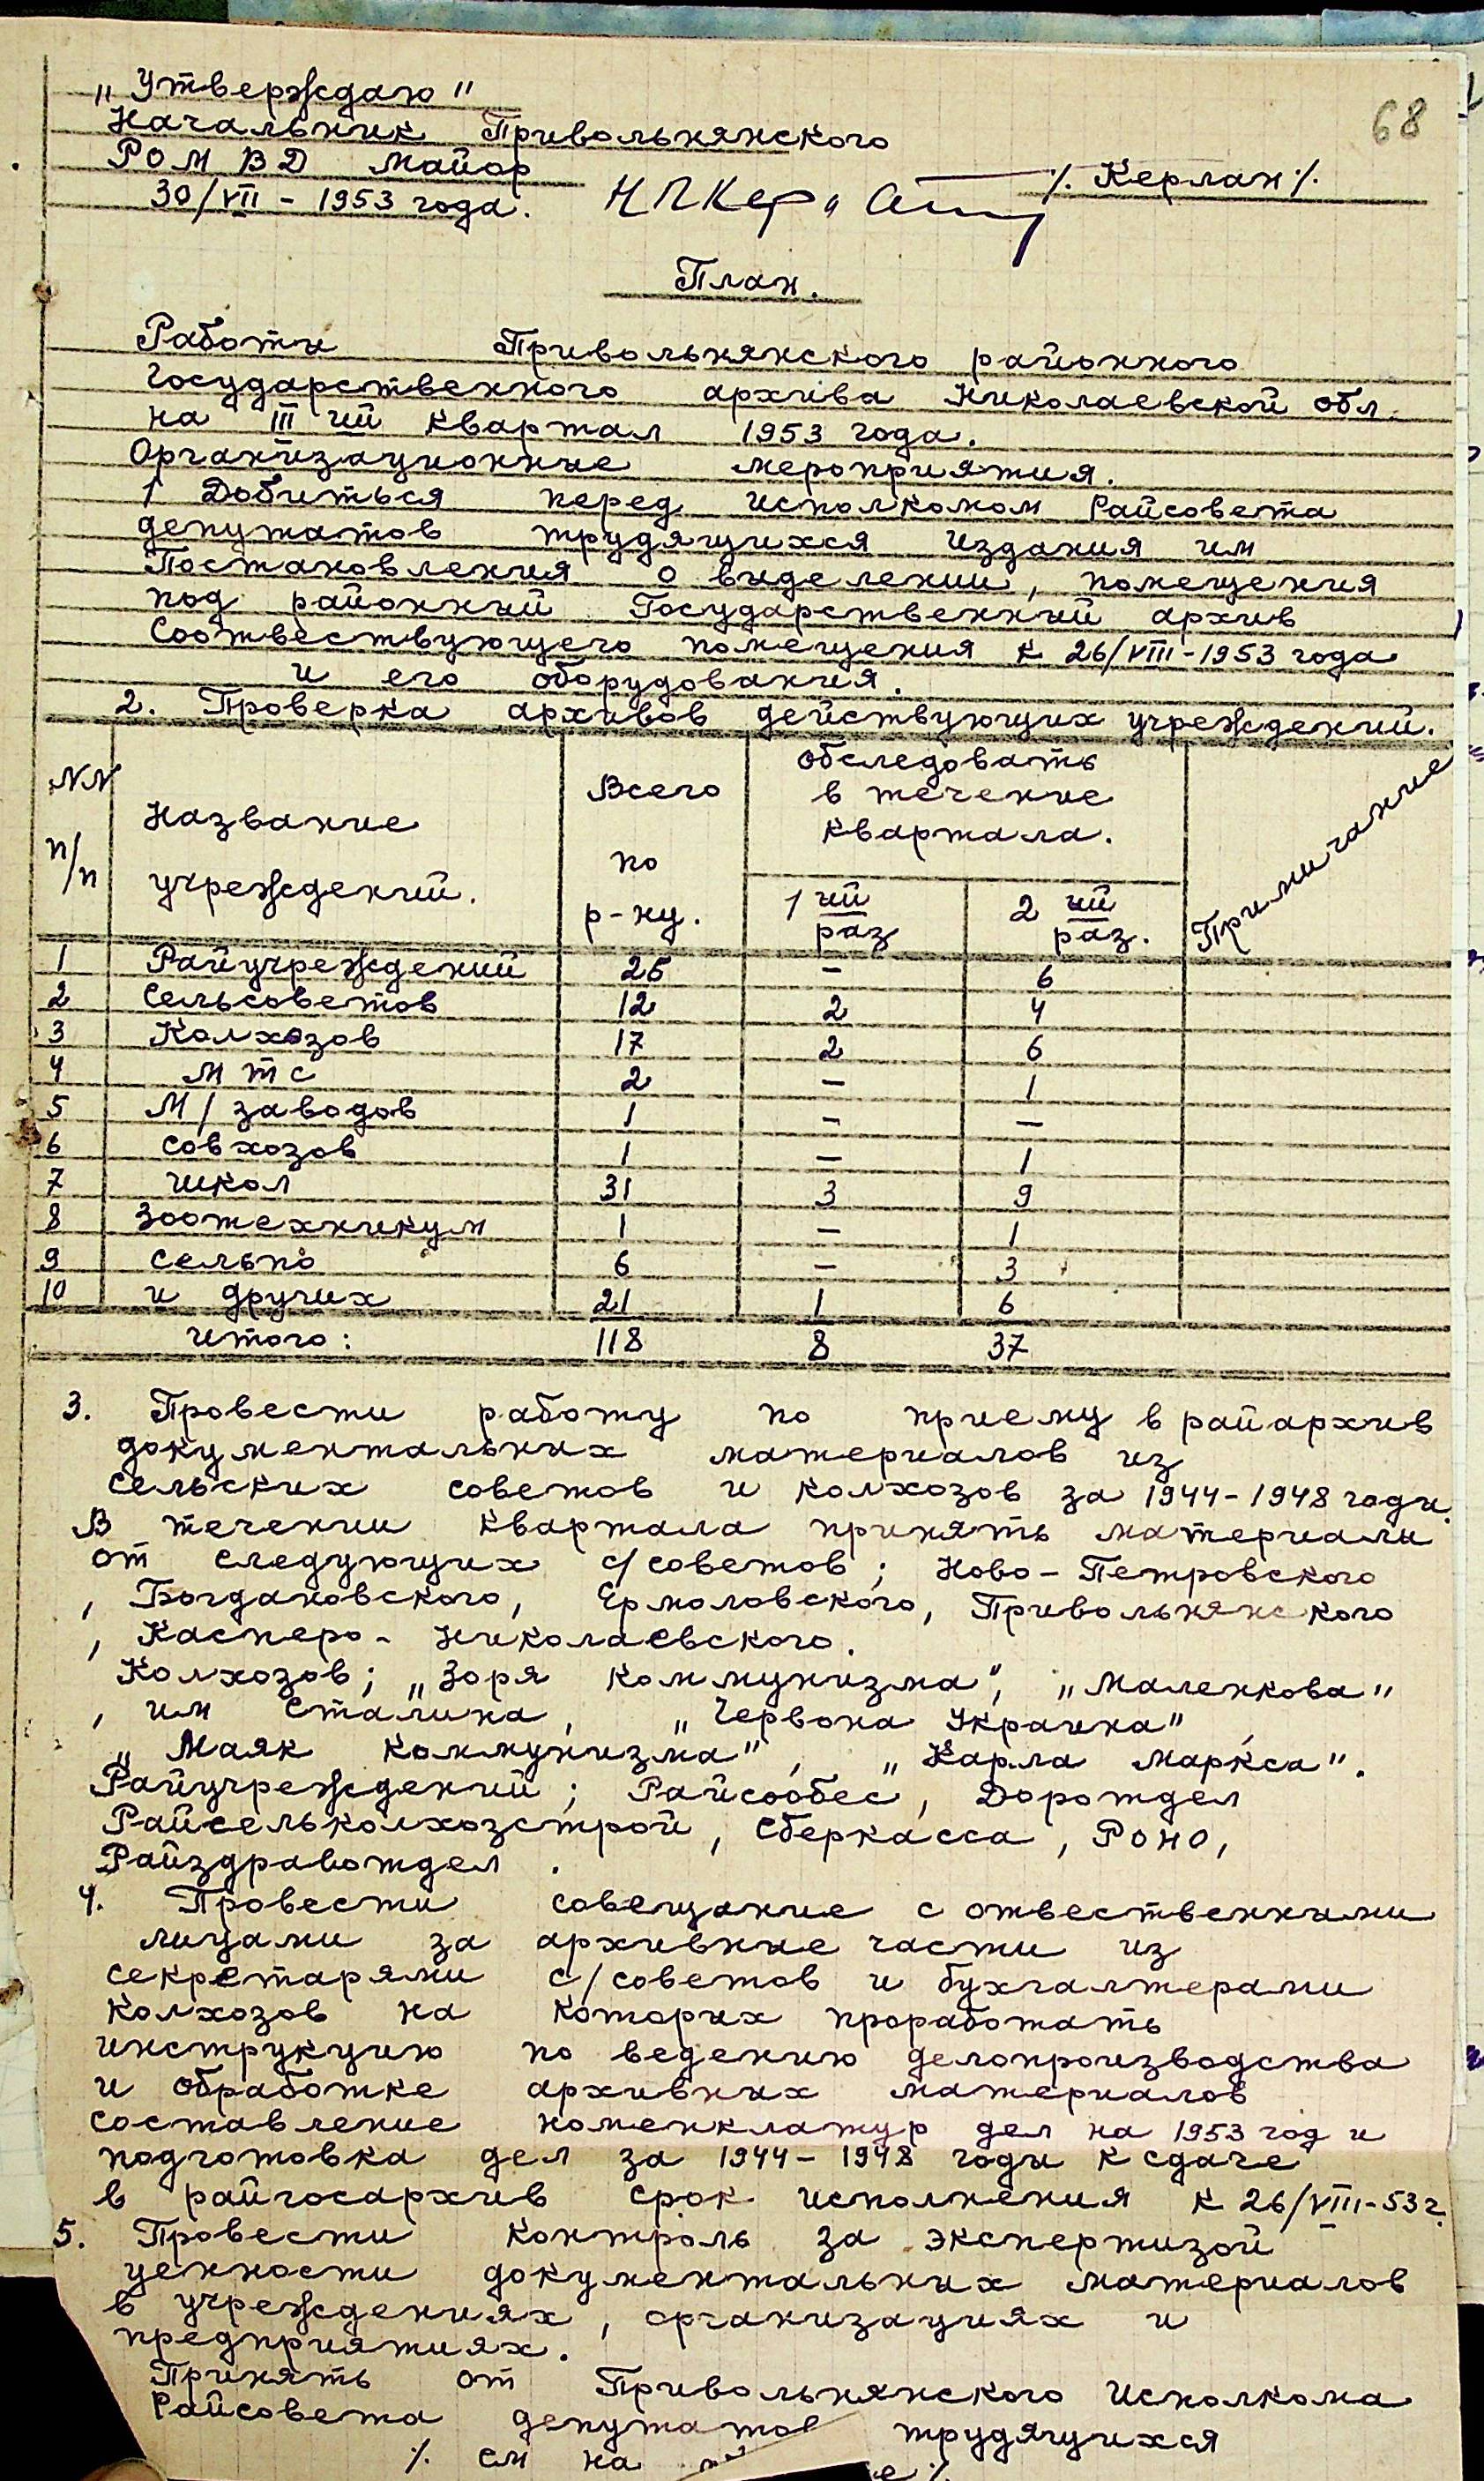 „Утверждаю"
68
Начальник Привольнянского
РОМВД майор
/. Керлан /.
30/VII - 1953 года.
План.
Работы Привольнянского районного
Государственного архива Николаевской обл.
на III ий квартал 1953 года.
Организационные мероприятия.
1 Добиться перед исполкомом Райсовета
депутатов трудящихся издания им
Постановления о выделении, помещения
под районный Государственный архив
Соотвествующего помещения к 26/VIII-1953 года
и его оборудования.
2. Проверка архивов действующих учреждений.
NN п/п Название учреждений. Всего по р-ну. Обследовать в течение квартала. Примичание
1 ий раз 2 ий раз.
1 Райучреждений 26 - 6
2 Сельсоветов 12 2 4
3 Колхозов 17 2 6
4 МТС 2 - 1
5 М/заводов 1 - -
6 совхозов 1 - 1
7 школ 31 3 9
8 Зоотехникум 1 - 1
9 Сельпо 6 - 3
10 и других 21 1 6
итого: 118 8 37
3. Провести работу по приему в райархив
документальных материалов из
сельских советов и колхозов за 1944-1948 годы.
В течении квартала принять материалы
от следующих с/советов; Ново-Петровского
, Богдановского, Ермоловского, Привольнянского
, Касперо-Николаевского.
Колхозов; „Зоря коммунизма", „Маленкова"
, им Сталина, „Червона Украина",
„Маяк Коммунизма", „Карла Маркса".
Райучреждений; Райсообес, Доротдел
Райселькоlхозстрой, Сберкасса, РОНО,
Райздравотдел.
4. Провести совещание с отвественными
лицами за архивные части из
секретарями с/советов и бухгалтерами
колхозов на которых проработать
инструкцию по ведению делопроизводства
и обработке архивных материалов
составление номенклатур дел на 1953 год и
подготовка дел за 1944-1948 годы к сдаче
в райгосархив срок исполнения к 26/VIII-53 г.
5. Провести контроль за экспертизой
ценности документальных материалов
в учреждениях, организациях и
предприятиях.
Принять от Привольнянского Исполкома
Райсовета депутатов трудящихся
/. см на